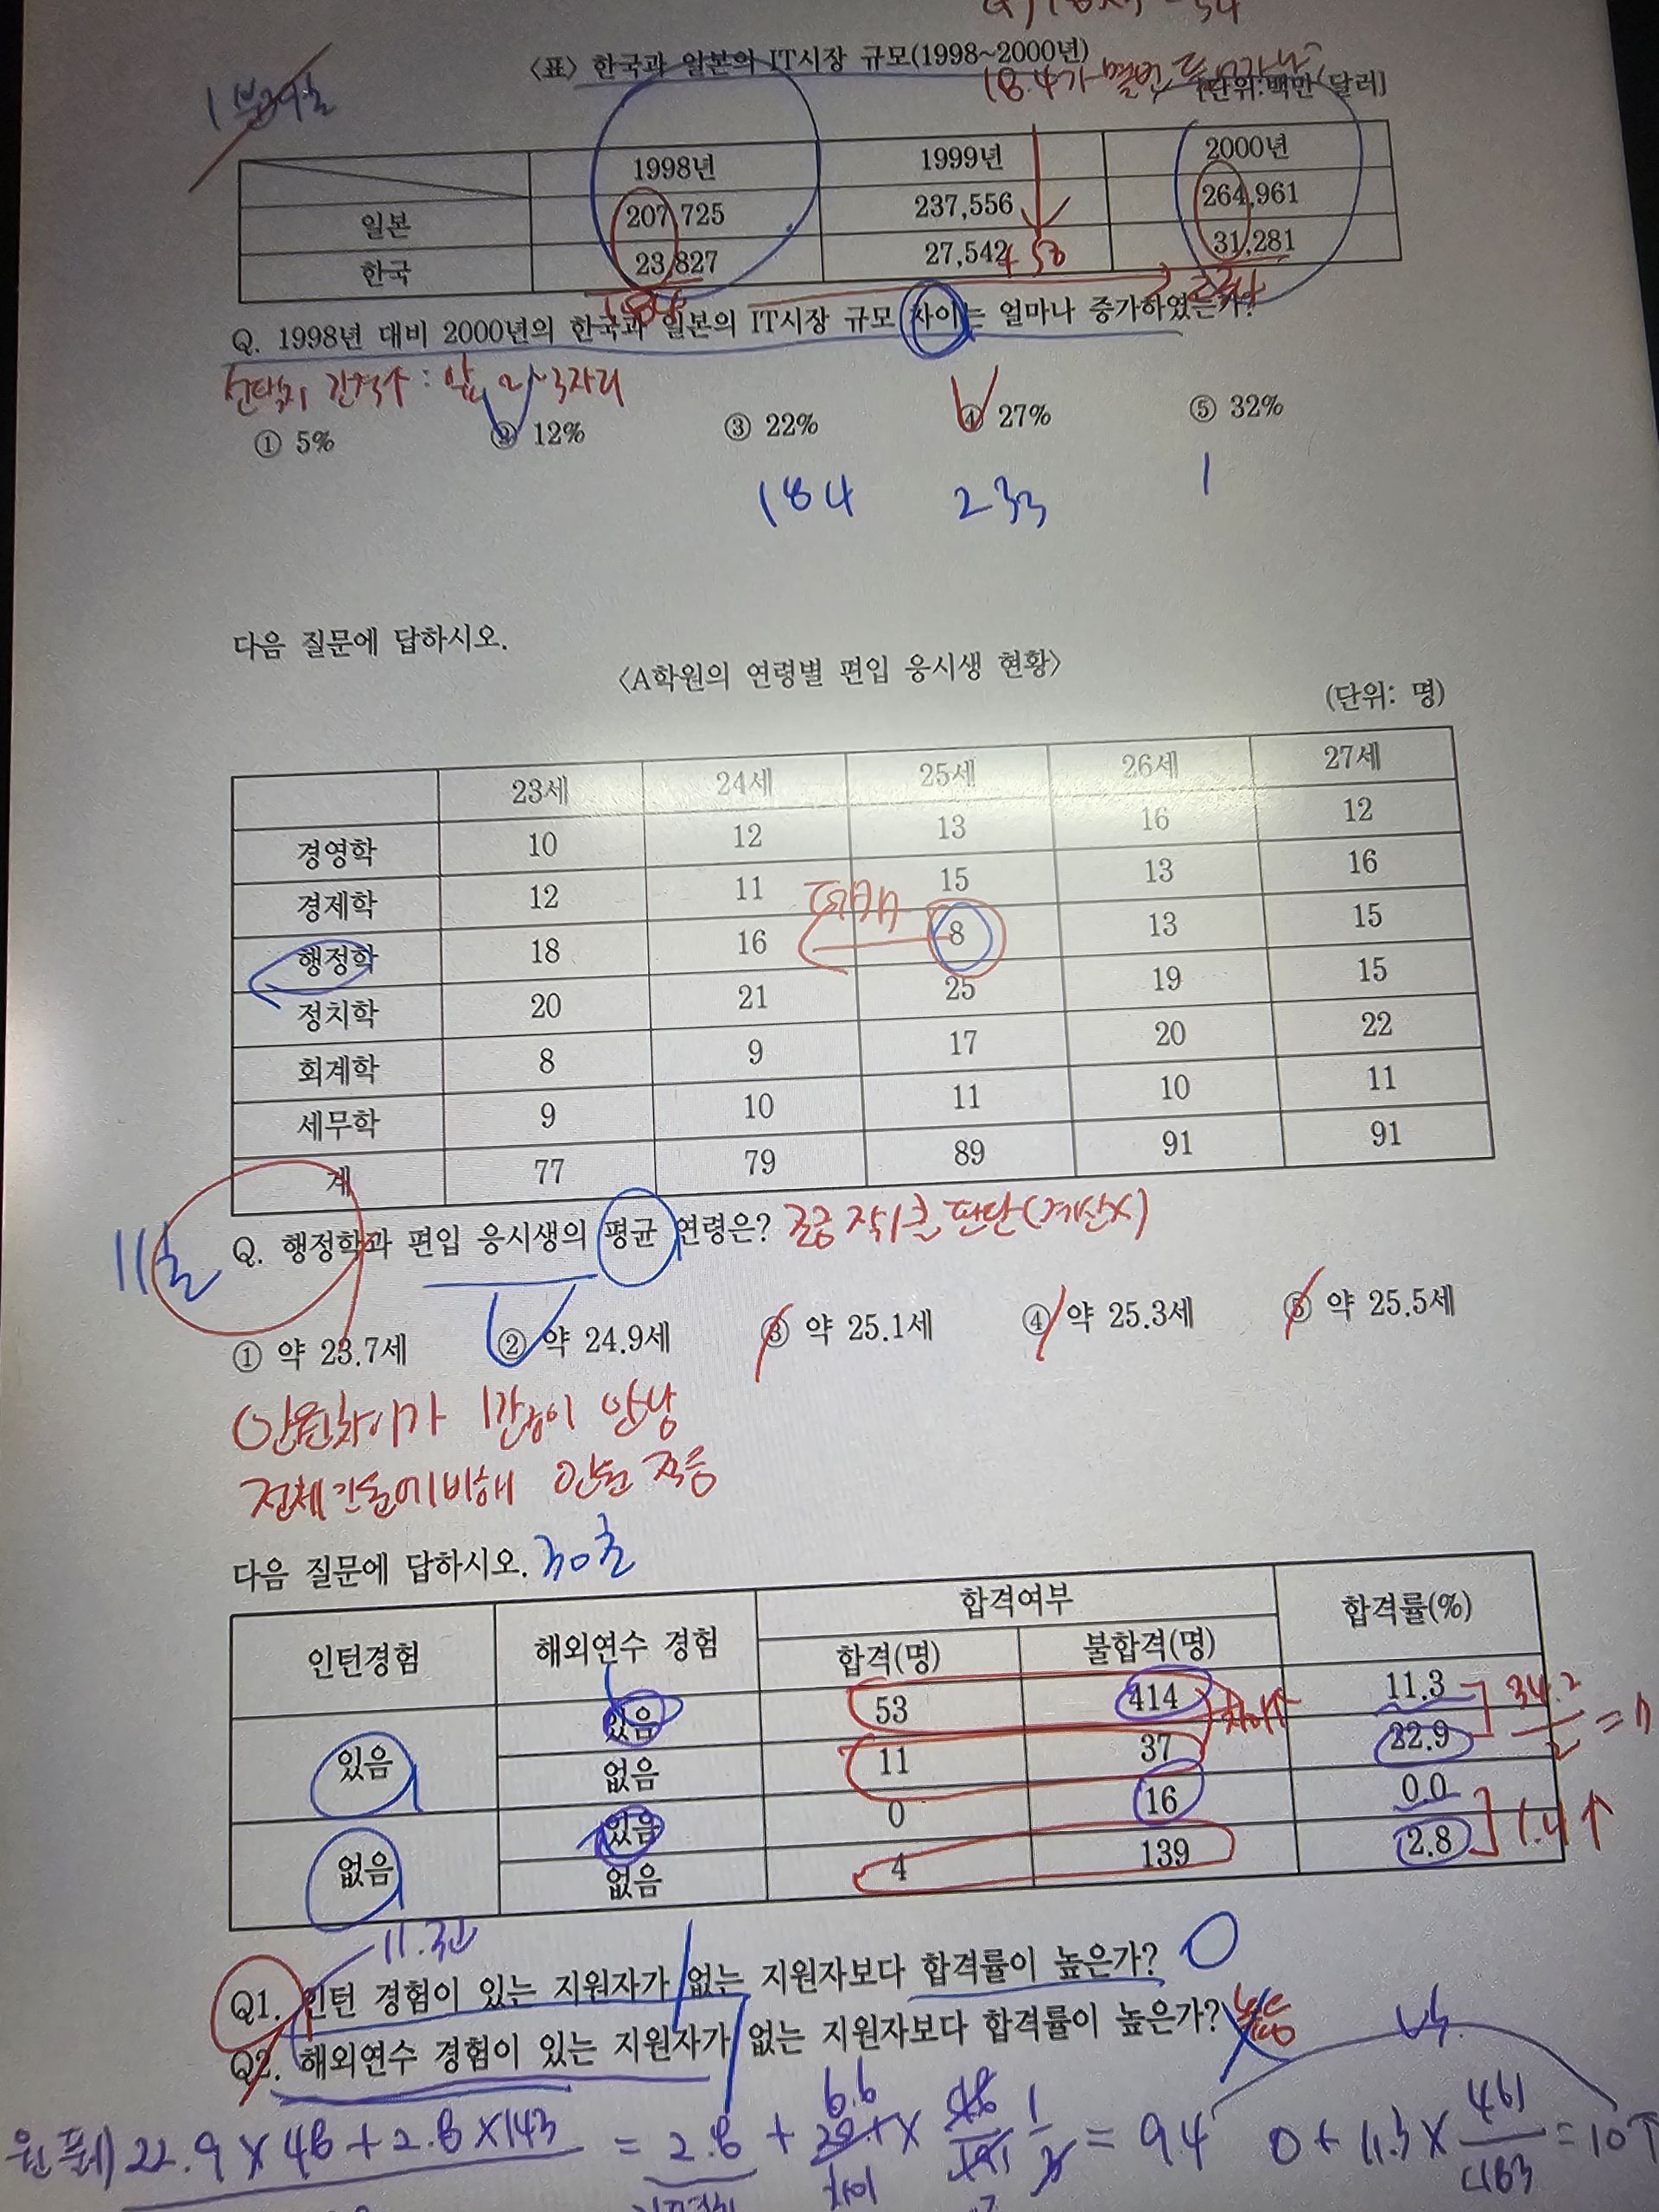 〈표〉 한국과 일본의 IT시장 규모(1998~2000년)
[단위:백만 달러]
1998년 1999년 2000년
일본 207,725 237,556 264,961
한국 23,827 27,542 31,281
+50
184
Q. 1998년 대비 2000년의 한국과 일본의 IT시장 규모 차이는 얼마나 증가하였는가?
선택지 간격↑ : 앞 2~3자리
① 5% ② 12% ③ 22% ④ 27% ⑤ 32%
184 233 1
다음 질문에 답하시오.
〈A학원의 연령별 편입 응시생 현황〉
(단위: 명)
23세 24세 25세 26세 27세
경영학 10 12 13 16 12
경제학 12 11 15 13 16
행정학 18 16 8 13 15
정치학 20 21 25 19 15
회계학 8 9 17 20 22
세무학 9 10 11 10 11
계 77 79 89 91 91
11초
Q. 행정학과 편입 응시생의 평균 연령은? 조금 작/큰 판단(계산X)
① 약 23.7세 ② 약 24.9세 ③ 약 25.1세 ④ 약 25.3세 ⑤ 약 25.5세
인원차이가 많이 안남
전체 인원에 비해 인원 적음
다음 질문에 답하시오. 30초
인턴경험 해외연수 경험 합격여부 합격률(%)
합격(명) 불합격(명)
있음 있음 53 414 11.3
없음 11 37 22.9
없음 있음 0 16 0.0
없음 4 139 2.8
차이↑
34.2/2 = 17
1.4↑
Q1. 인턴 경험이 있는 지원자가 없는 지원자보다 합격률이 높은가? O
Q2. 해외연수 경험이 있는 지원자가 없는 지원자보다 합격률이 높은가? X 높음
vs.
22.9 × 48 + 2.8 × 143 = 2.8 + = 9.4 0 + 11.3 × 467/483 = 10↑